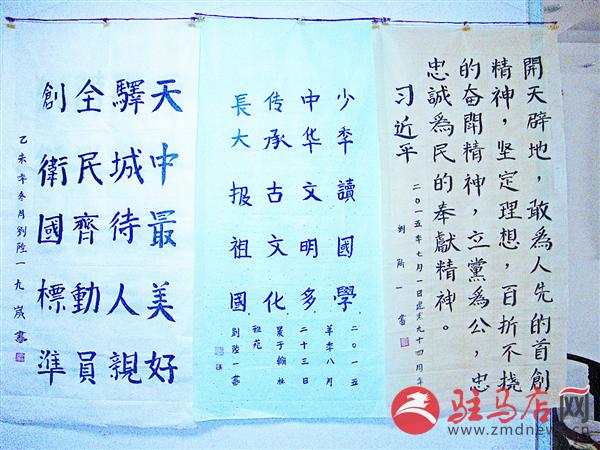 開天辟地，敢為人先的首創
精神，坚定理想，百折不挠
的奋鬥精神，立黨為公，忠
忠誠為民的奉獻精神。
习近平
二〇一五年七月一日建党九十四周年
劉陸一書
少年讀國學
中华文明多
传承古文化
長大报祖國
二〇一五
羊年八月
二十三日
劉陸一書
天中最美好
驛城待人親
全民齊動員
創衛國標準
乙未年冬月劉陸一九歲書
驻马店网
www.zmdnews.cn